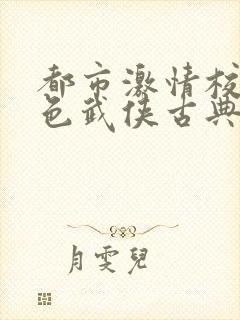 都市激情校
色武侠古典
月雯兒